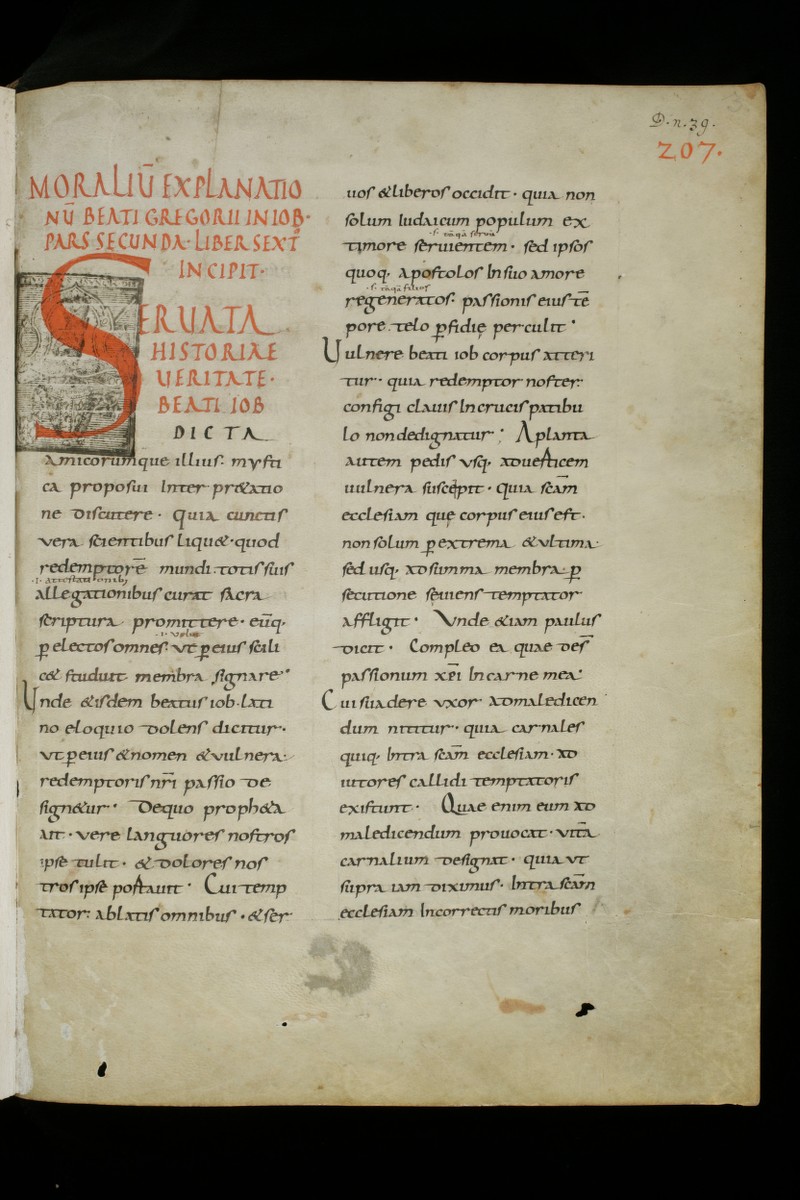 D. n. 39.
207.
MORALIŪ EXPLANATIO
NŪ BEATI GREGORII IN IOB·
PARS SECUNDA· LIBER SEXT
INCIPIT·
SERUATA
HISTORIAE
UERITATE·
BEATI IOB
DICTA
amicorumque illius· mysti
ca proposui Inter pr&atio
ne discutere· quia cunctis
vera scientibus liqu&· quod
redemptorē mundi totis suis
allegationibus curat sacra
scriptura promittere· eūq·
p electos omnes· vt p eius scili
c& studuit membra signare·
Unde &isdem beatus iob· Lati
no eloquio dolens dicitur·
vt p eius & nomen & vulnera·
redemptoris nr̄i passio de
sign&ur· De quo proph&a
ait· vere languores nostros
ipse tulit· & dolores nos
tros ipse portauit· Cui temp
tator· ablatis omnibus· & ser
uos & liberos occidit· quia non
solum Iudaicum populum ex
timore seruientem· sed ipsos
quoq· apostolos In suo amore
regeneratos· passionis eius tē
pore telo pfidię perculit·
Uulnere beati iob corpus atteri
tur· quia redemptor noster·
configi clauis In crucis patibu
lo non dedignatur· A planta
autem pedis vsq· ad uerticem
uulnera suscepit· quia scām
ecclesiam quę corpus eius est·
non solum p extrema & vltima·
sed usq· ad summa membra p
secutione sęuiens temptator
affligit· Vnde &iam paulus
dicit· Compleo ea quae des̄
passionum xp̄i In carne mea·
Cui suadere vxor ad maledicen
dum nititur· quia carnales
quiq· Intra scām ecclesiam· ad
iutores callidi temptatoris
existunt· Quae enim eum ad
maledicendum prouocat· vitā
carnalium designat· quia vt
supra iam diximus· Intra scām
ecclesiam Incorrectis moribus